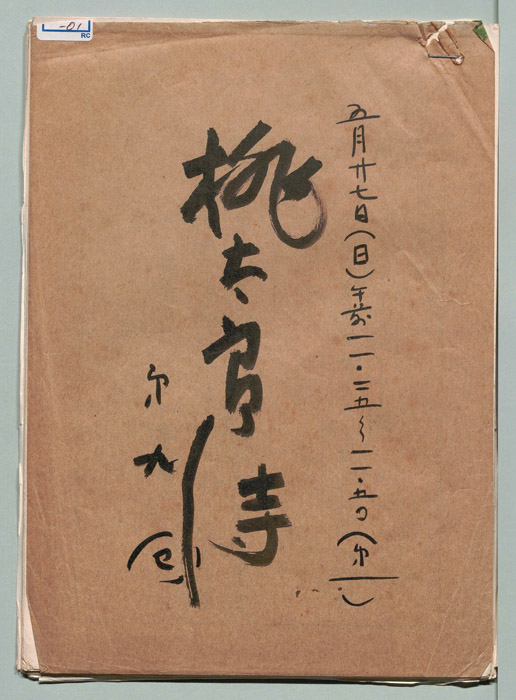 -01
RC
五月廿七日(日)午前一一・二五〜一一・五〇(第一)
桃太郎侍
第九回